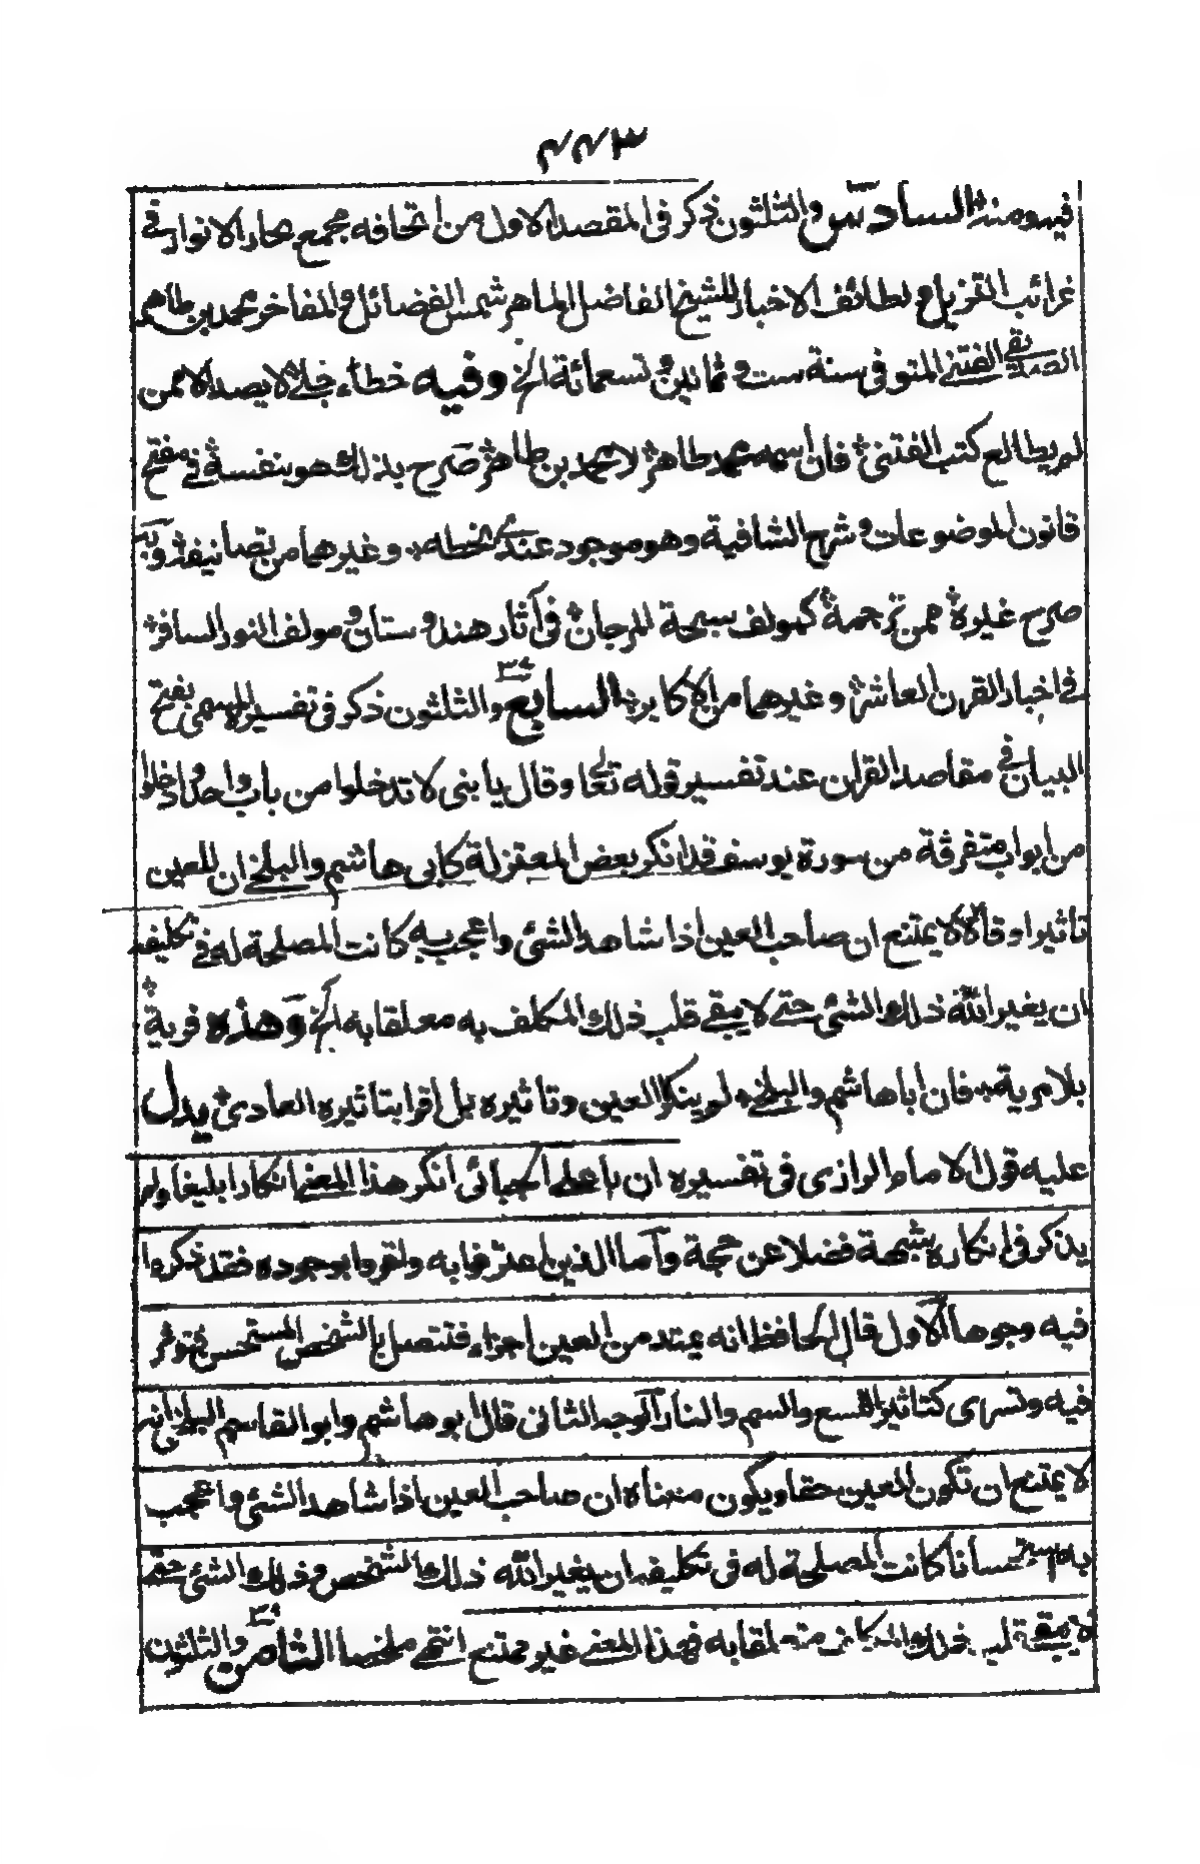 ٤٤٣
فيه ومنها السادس والثلثون ذكر فى المقصد الاول من اتحافه مجمع بحار الانوار فى
غرائب التنزيل ولطائف الاخبار للشيخ الفاضل الماهر شمس الفضائل والمفاخر محمد بن طاهر
الصديقى الفتنى المتوفى سنة ست وثمانين وتسعمائة الخ وفيه خطأ جلى لا يصدر الا ممن
لم يطالع كتب الفتنى فان اسمه محمد طاهر لا محمد بن طاهر صرح بذلك هو بنفسه فى مفتتح
قانون الموضوعات وشرح الشافية وهو موجود عندى بخطه وغيرهما من تصانيفه وبه
صرح غيره ممن ترجمه كمولف سبحة المرجان فى آثار هندوستان ومولف النور السافر
فى اخبار القرن العاشر وغيرهما من الاكابر السابع ٣٧ والثلثون ذكر فى تفسيره المسمى بفتح
البيان فى مقاصد القران عند تفسير قوله تعالى وقال يا بنى لا تدخلوا من باب واحد وادخلوا
من ابواب متفرقة من سورة يوسف قد انكر بعض المعتزلة كابى هاشم والبلخى ان للعين
تاثيرا وقالا لا يمتنع ان صاحب العين اذا شاهد الشئ واعجب به كانت المصلحة له فى تكليفه
ان يغير الله ذلك الشئ حتى لا يبقى قلب ذلك المكلف به معلقا به الخ وهذه فرية
بلا مرية فان ابا هاشم والبلخى لم ينكرا العين وتاثيره بل اقرا بتاثيره العادى يدل
عليه قول الامام الرازى فى تفسيره ان ابا على الجبائى انكر هذا المعنى انكارا بليغا ولم
يذكر فى انكاره شبهة فضلا عن حجة وأما الذين اعترفوا به واقروا بوجوده فقد ذكروا
فيه وجوها الاول قال الحافظ انه يمتد من العين اجزاء فتتصل بالشخص المستحسن فتؤثر
فيه وتسرى كتاثير اللسع والسم والنار الوجه الثانى قال ابو هاشم وابو القاسم البلخى انه
لا يمتنع ان تكون العين حقا ويكون معناه ان صاحب العين اذا شاهد الشئ واعجب
به استحسانا كانت المصلحة له فى تكليفه ان يغير الله ذلك الشخص وذلك الشئ حتى
لا يبقى قلب ذلك المكلف متعلقا به فهذا المعنى غير ممتنع انتهى ملخصا الثامن ٣٨ والثلثون